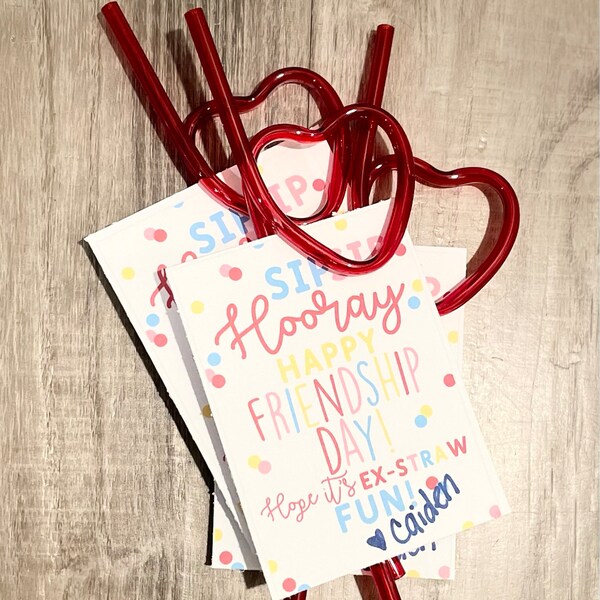 SIP SIP
Hooray
HAPPY
FRIENDSHIP
DAY!
Hope it's EX-STRAW
FUN!
♥ Caiden
SIP SIP